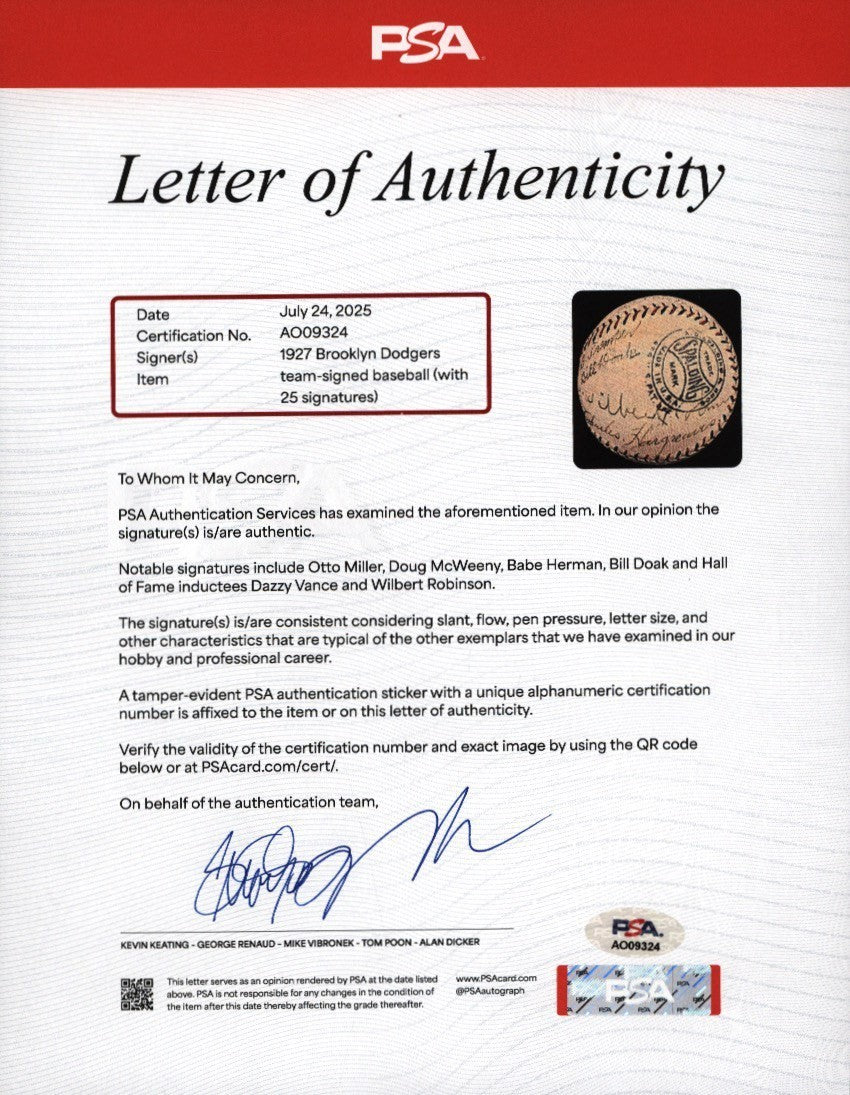 PSA
Letter of Authenticity
Date July 24, 2025
Certification No. AO09324
Signer(s) 1927 Brooklyn Dodgers
Item team-signed baseball (with
25 signatures)
SPALDING
TRADE
MARK
To Whom It May Concern,
PSA Authentication Services has examined the aforementioned item. In our opinion the
signature(s) is/are authentic.
Notable signatures include Otto Miller, Doug McWeeny, Babe Herman, Bill Doak and Hall
of Fame inductees Dazzy Vance and Wilbert Robinson.
The signature(s) is/are consistent considering slant, flow, pen pressure, letter size, and
other characteristics that are typical of the other exemplars that we have examined in our
hobby and professional career.
A tamper-evident PSA authentication sticker with a unique alphanumeric certification
number is affixed to the item or on this letter of authenticity.
Verify the validity of the certification number and exact image by using the QR code
below or at PSAcard.com/cert/.
On behalf of the authentication team,
KEVIN KEATING - GEORGE RENAUD - MIKE VIBRONEK - TOM POON - ALAN DICKER
This letter serves as an opinion rendered by PSA at the date listed
above. PSA is not responsible for any changes in the condition of
the item after this date thereby affecting the grade thereafter.
www.PSAcard.com
@PSAautograph
PSA.
AO09324
PSA